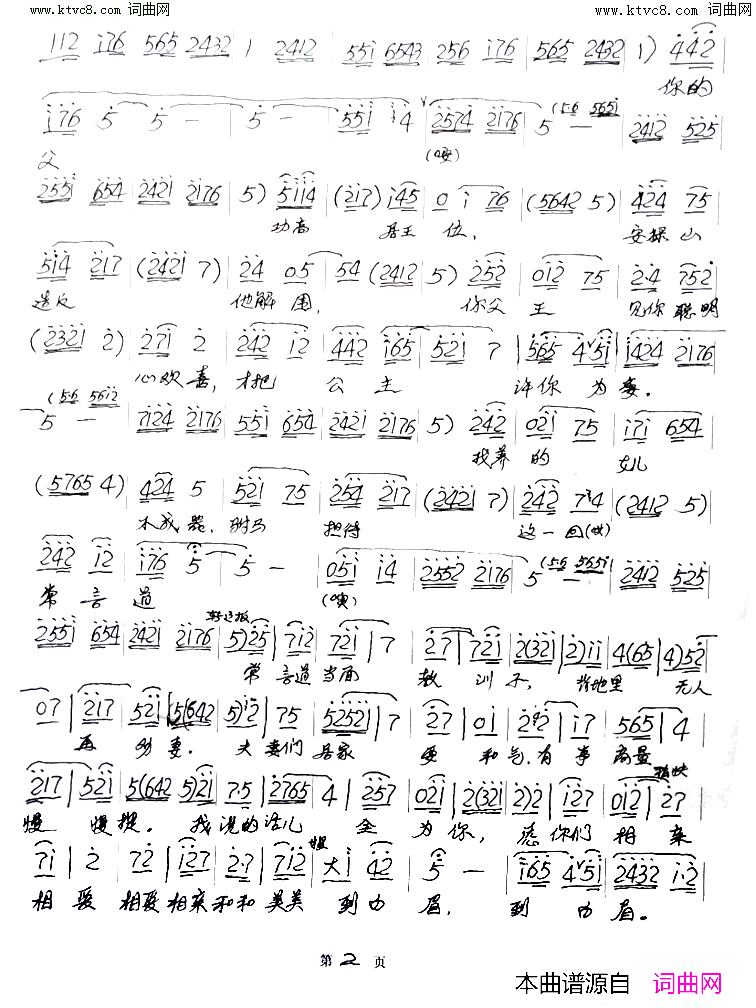 www.ktvc8.com 词曲网 www.ktvc8.com 词曲网
112 i76 565 2432 1 2412 55i 6543 256 i76 565 2432 1) 442
你的
i76 5 5 - 5 - 55i i4 2574 2176 5 - (56 565i 2412 525
父 (哎)
255i 654 242i 2176 5) 5ii4 (217) i45 0 i 76 (5642 5) 424 75
功高 居王 位, 安禄山
5i4 217 (242i 7) 24 05 54 (2412 5) 252 0i2 75 2·4 752
造反 他解围, 你父 王 见你聪明
(232i 2) 27i 2 242 i2 442 i65 52i 7 565 45i i424 2176
心欢喜, 才把 公主 许你为妻.
5 - (56 56i2 7i24 2176 55i 654 242i 2176 5) 242 02i 75 i7i 654
我养的 女儿
(5765 4) 424 5 52i 75 254 217 (242i 7) 242 74 (2412 5)
不成器, 驸马 担待 这一回(哎)
242 i2 i76 5 5 - 05i i4 2552 2176 5 - (56 565i 2412 525
常言道 (哎)
255i 654 242i 2176 5) 25 7i2 72i 7 27 72i 2(32i 2)ii 4(65 4)52
常言道当面 教训子, 背地里 无人
07 217 52i 5(642 5)i2 75 5252i 7 27 0i 2 i7 565 4
再劝妻. 夫妻们居家 要和气, 有事商量
217 52i 5(642 5)2i 75 2765 4 257 02i 2(32i 2)2 i27 0i2 27
慢慢提. 我说的话儿 全为你, 愿你们相亲
7i 2 72 i27 2·7 7i2 大i 42 5 - i65 45i 2432 i·2
相爱相爱相亲和和美美 到白眉, 到白眉.
第 2 页
本曲谱源自 词曲网